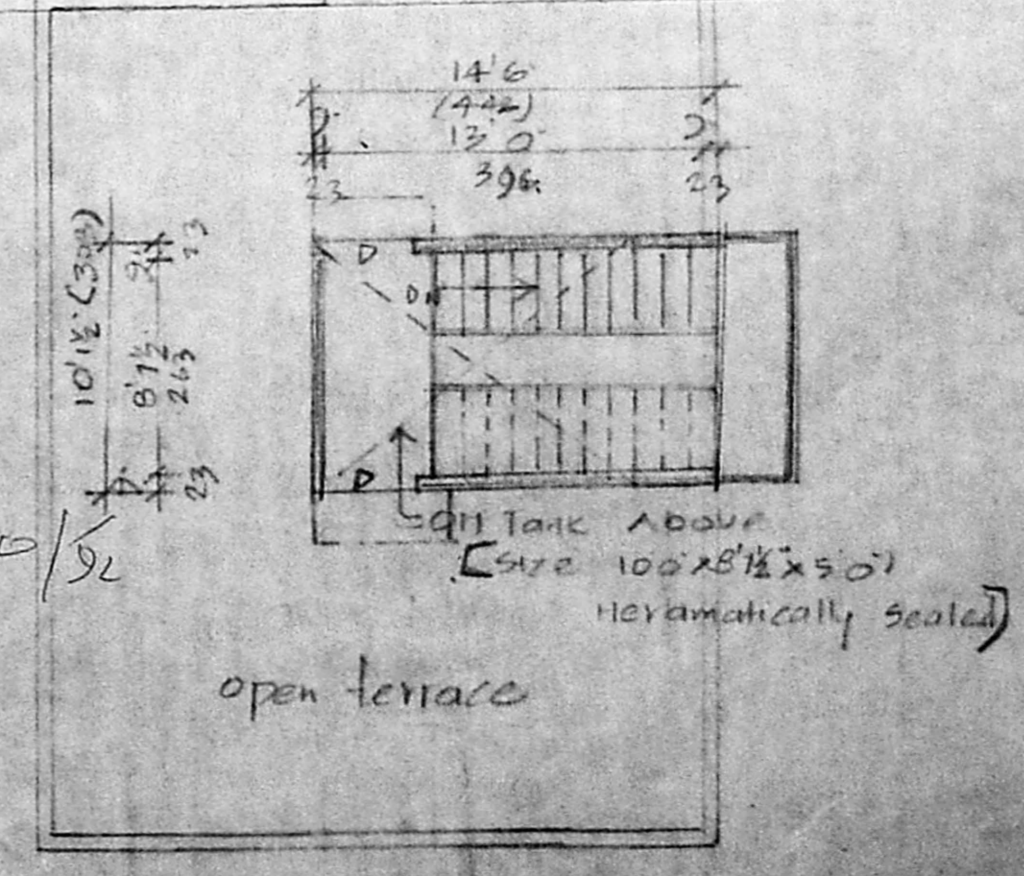 14'6"
(442)
9"
13'0"
9"
23
396
23
D
DN
10'1½" (303)
9"
23
8'1½
263
9"
23
D
OH Tank Above
[Size 10'0"x8'1½"x5'0")
Heramatically Sealed]
open terrace